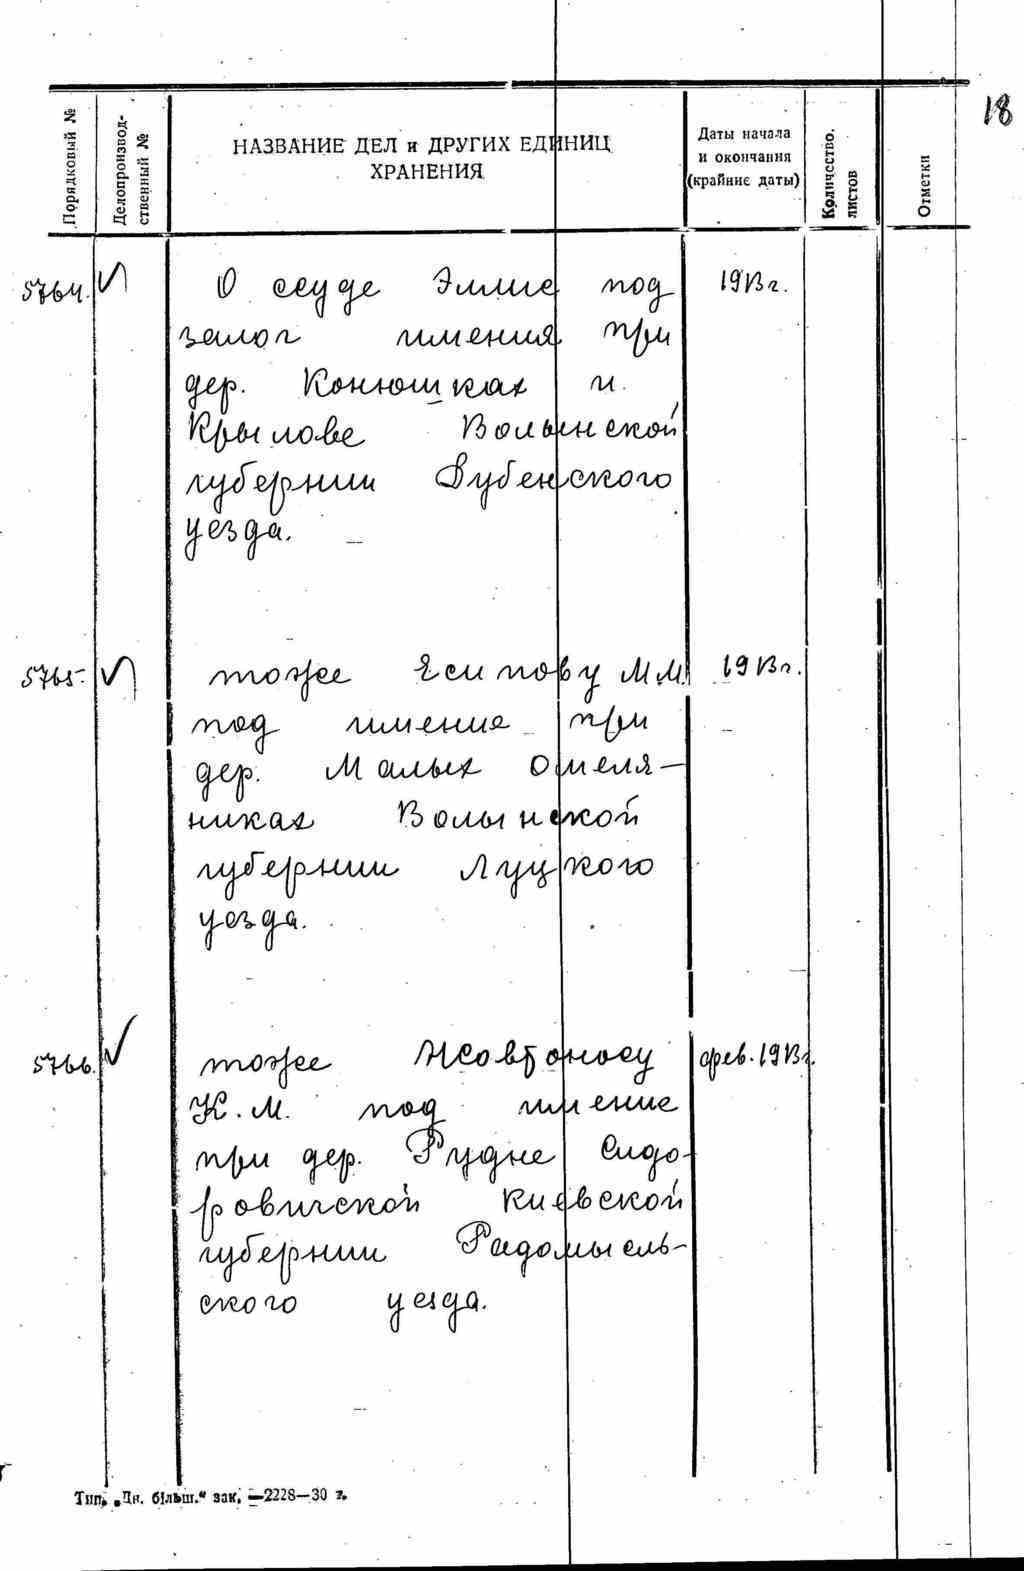 18
Порядковый №
Делопроизвод-
ственный №
НАЗВАНИЕ ДЕЛ и ДРУГИХ ЕДИНИЦ
ХРАНЕНИЯ
Даты начала
и окончания
(крайние даты)
Количество
листов
Отметки
5764. О ссуде Эллис под 1913 г.
залог имения при
дер. Конюшках и
Крылове Волынской
губернии Дубенского
уезда.
5765. тоже Есипову М.М. 1913 г.
под имение при
дер. Малых Омеля-
никах Волынской
губернии Луцкого
уезда.
5766. тоже Жовтоносу фев. 1913 г.
К. М. под имение
при дер. Рудне Сидо-
ровичской Киевской
губернии Радомысль-
ского уезда.
Тип. „Дн. більш.“ зак. —2228—30 т.